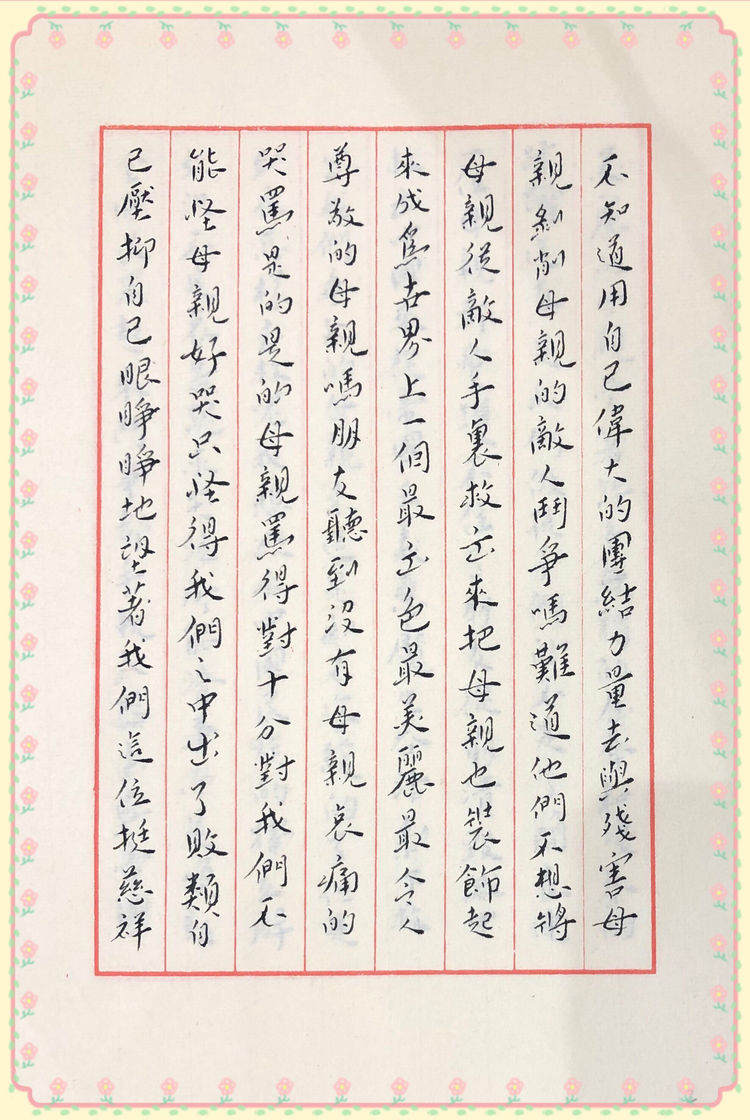 不知道用自己偉大的團結力量去與殘害母
親剝削母親的敵人鬥爭嗎難道他們不想將
母親從敵人手裏救出來把母親也裝飾起
來成爲世界上一個最出色最美麗最令人
尊敬的母親嗎朋友聽到沒有母親哀痛的
哭罵是的是的母親罵得對十分對我們不
能怪母親好哭只怪得我們之中出了敗類自
己壓抑自己眼睜睜地望著我們這位挺慈祥